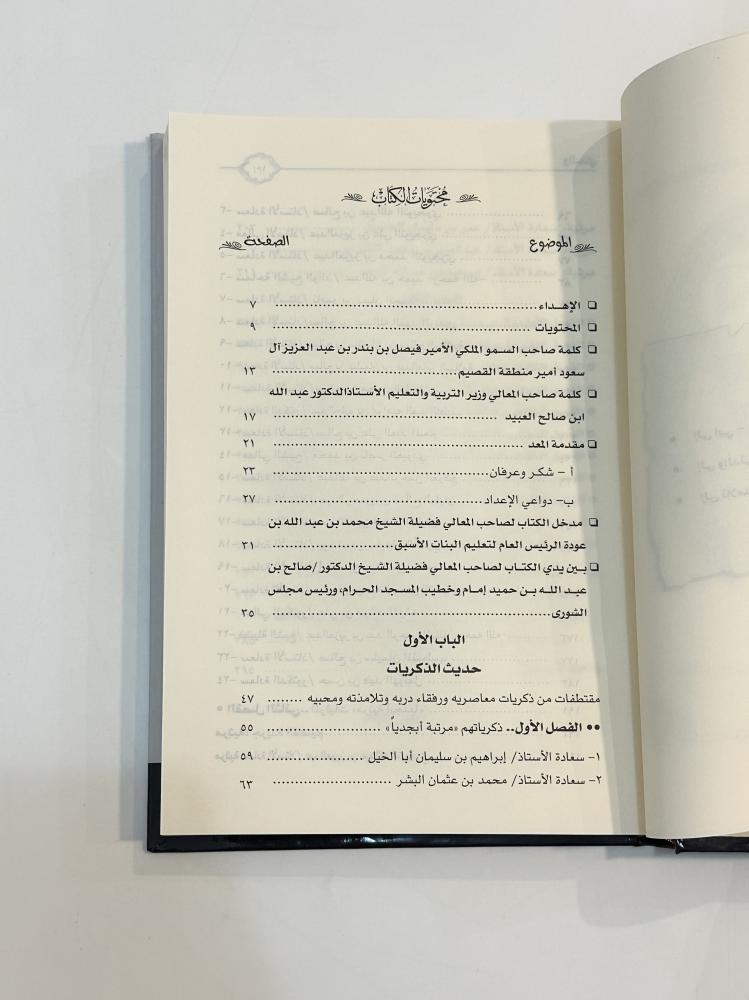 محتويات الكتاب
الموضوع الصفحة
❑ الإهـــداء ........................ ٧
❑ المحتويات ........................ ٩
❑ كلمة صاحب السمو الملكي الأمير فيصل بن بندر بن عبد العزيز آل
سعود أمير منطقة القصيم ........................ ١٣
❑ كلمة صاحب المعالي وزير التربية والتعليم الأستاذالدكتور عبد الله
ابن صالح العبيد ........................ ١٧
❑ مقدمة المعد ........................ ٢١
أ - شكر وعرفان ........................ ٢٣
ب- دواعي الإعداد ........................ ٢٧
❑ مدخل الكتاب لصاحب المعالي فضيلة الشيخ محمد بن عبد الله بن
عودة الرئيس العام لتعليم البنات الأسبق ........................ ٣١
❑ بين يدي الكتاب لصاحب المعالي فضيلة الشيخ الدكتور /صالح بن
عبد الله بن حميد إمام وخطيب المسجد الحرام، ورئيس مجلس
الشورى ........................ ٣٥
الباب الأول
حديث الذكريات
مقتطفات من ذكريات معاصريه ورفقاء دربه وتلامذته ومحبيه ........ ٤٧
•• الفصل الأول.. ذكرياتهم «مرتبة أبجدياً» ........................ ٥٥
١- سعادة الأستاذ/ إبراهيم بن سليمان أبا الخيل ........................ ٥٩
٢- سعادة الأستاذ/ محمد بن عثمان البشر ........................ ٦٣